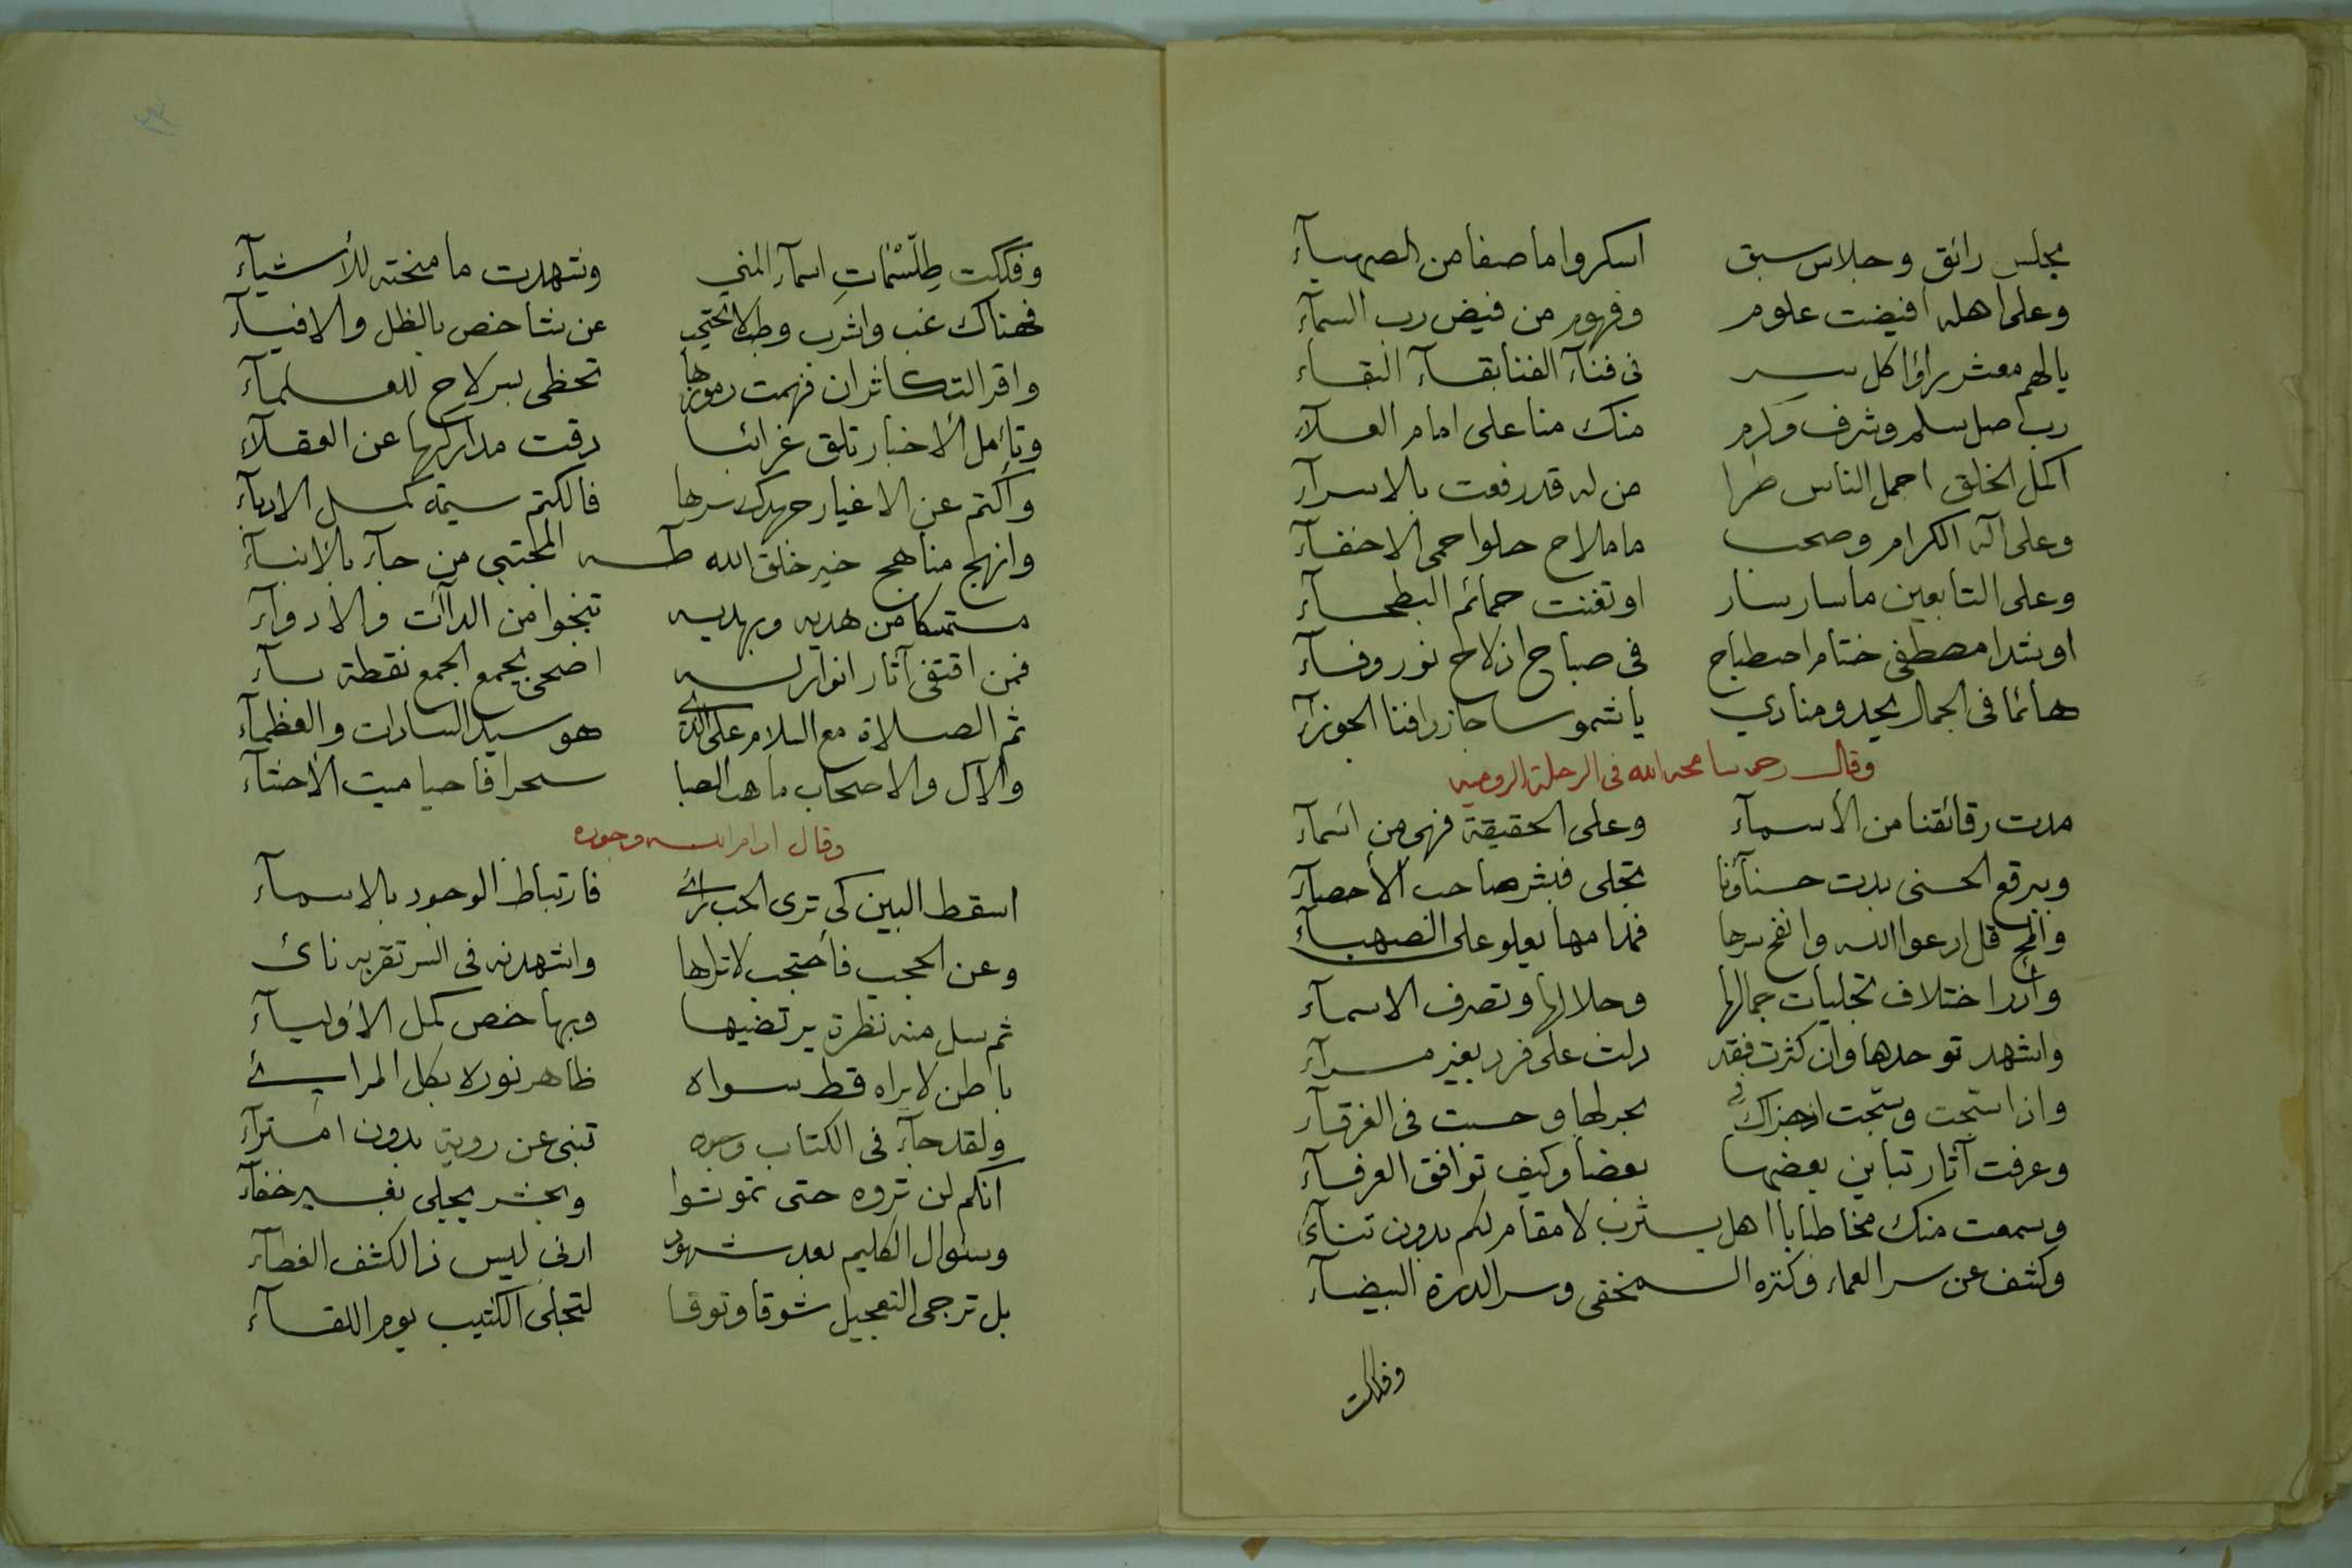 مجلس رائق وجلاس سبق اسكروا ما صفا من الصهبآء
وعلى اهله افيضت علوم وفهوم من فيض رب السمآء
يالهم معشر راؤا كل سر فى فنآء الفنا بقآء البقآء
رب صل سلم وشرف وكرم منك منا على امام العلآء
اكمل الخلق اجمل الناس طرا من له قد رفعت بالاسرآء
وعلى آله الكرام وصحب ما ملاح حلوا حمى الاحفآء
وعلى التابعين ما سار سار او تغنت حمائم البطحآء
او شدا مصطفى ختام اصطباح فى صباح اذ لاح نور وفآء
هائما فى الجمال يحدو منادي يا شموسا جاز رافنا الجوزآء
وقال رحمه سامحه الله فى الرحلة الروميه
مدت رقائقنا من الأسمآء وعلى الحقيقة فهى من اسمآء
وببرقع الحسنى بدت حسنآؤنا تجلى فبشر صاحب الأحصآء
والمح قل ادعوا الله وانفح سرها فمدامها يعلو على الصهبآء
وأدر اختلاف تجليات جمالها وجلالها وتصرف الاسمآء
واشهد توحدها وان كثرت فقد دلت على فرد بغير مرآء
واذا سبحت وسبحت اذ جزاك فى بحر لها وحسبت فى الغرقآء
وعرفت آثار تباين بعضها بعضا وكيف توافق العرفآء
وسمعت منك مخاطبا يا اهل يثرب لا مقام لكم بدون تنآء
وكشف عن سر العماء وكنزه المخفى وسر الدرة البيضآء
وفككت
وفككت طِلَّسْمَاتِ اسمآء المنى وشهدت ما منحته للأشيآء
فهناك غب واشرب وطب لا تحتجب عن شاخص بالظل والافيآء
واقرا التكاثر ان فهمت رموزها تحظى بسر لاح للعلمآء
وتأمل الاخبار تلق غرائبا دقت مداركها عن العقلآء
واكتم عن الاغيار جهدك سرها فالكتم سيمة كمل الادبآء
وانهج مناهج خير خلق الله طه المجتبى من جآء بالأنبآء
مستمسكا من هديه وبهديه تنجوا من الدآات والأدوآء
فمن اقتفى آثار انوار له اضحى بجمع الجمع نقطة بآء
ثم الصلاة مع السلام على الذى هو سيد السادات والعظمآء
والآل والاصحاب ما هب الصبا سحرا فاحيا ميت الأحشآء
وقال ادام الله وجوده
اسقط البين كى ترى الحب رائى فارتباط الوجود بالاسمآء
وعن الحجب فأحتجب لا تراها واشهدنه فى السر تقربه نائ
ثم سل منه نظرة يرتضيها وبها خص كمل الأوليآء
باطن لا يراه قط سواه ظاهر نوره بكل المرائ
ولقد جآء فى الكتاب وجوه تنبى عن روية بدون امترآء
انكم لن تروه حتى تموتوا وبحشر يجلى بغير خفآء
وسئوال الكليم بعد شهود ارنى ليس ذا لكشف الغطآء
بل ترجى التعجيل شوقا وتوقا لتجلى الكثيب يوم اللقآء